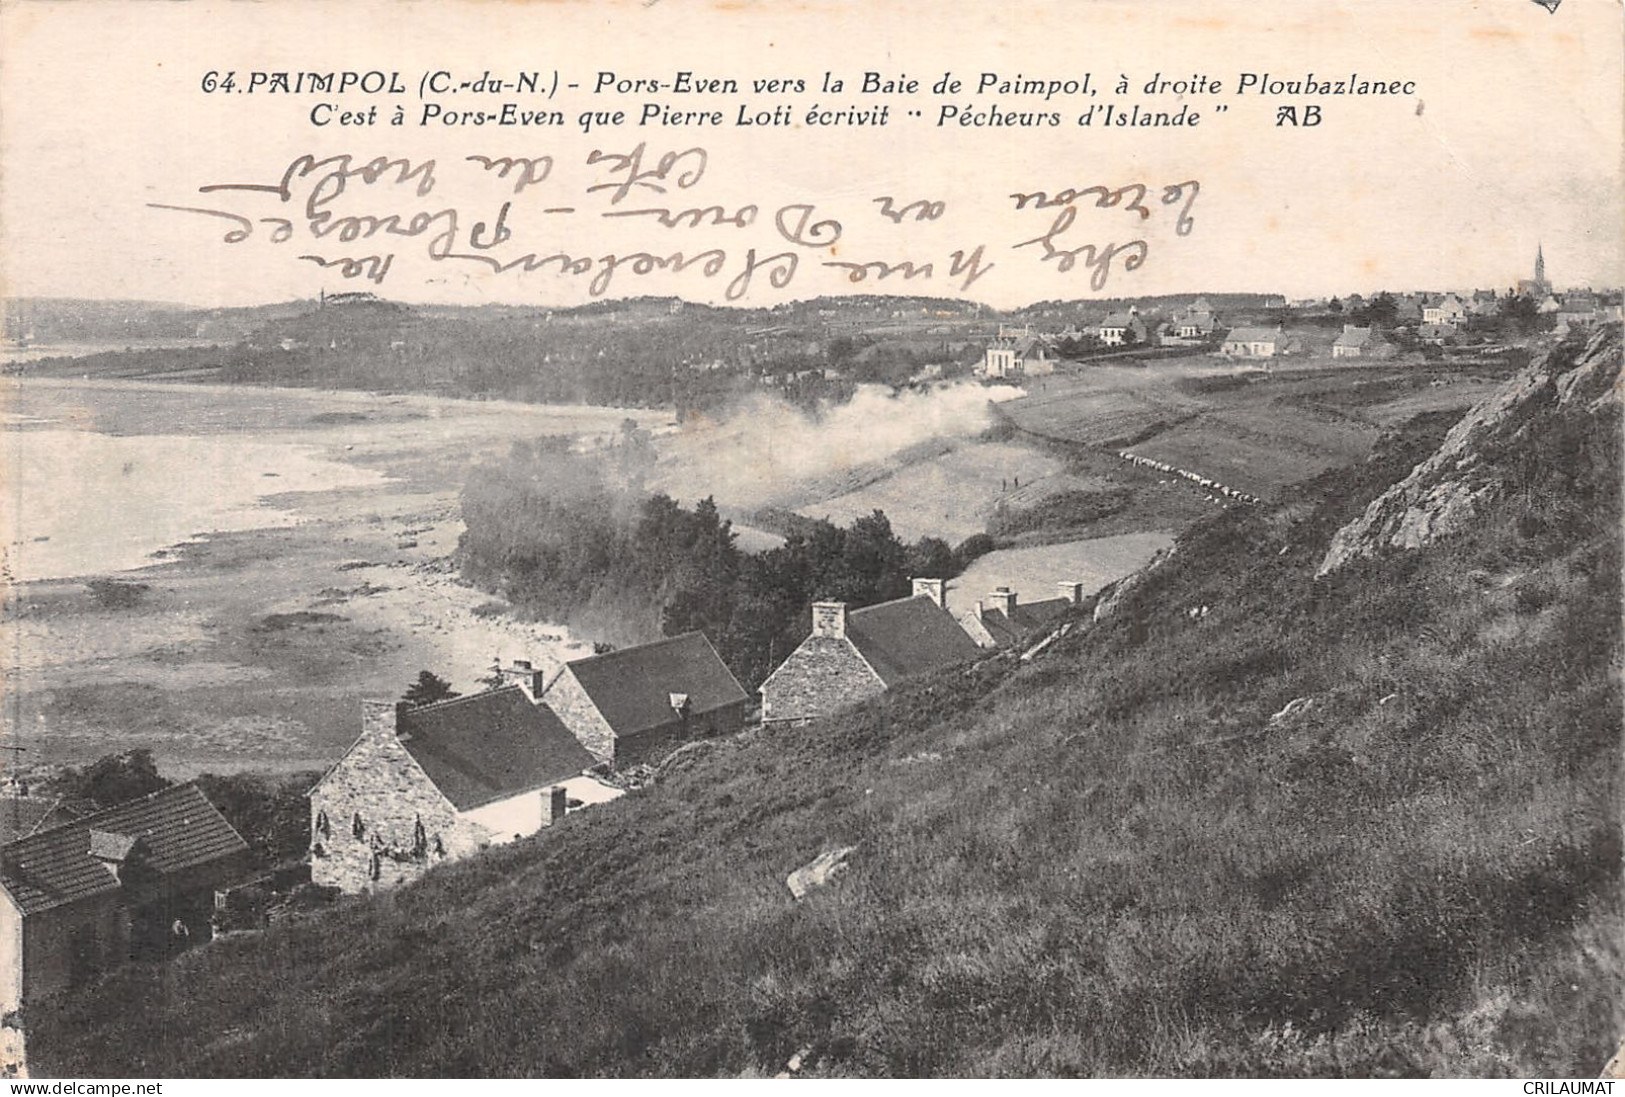 64. PAIMPOL (C.-du-N.) - Pors-Even vers la Baie de Paimpol, à droite Ploubazlanec
C'est à Pors-Even que Pierre Loti écrivit " Pécheurs d'Islande " AB
chez Mme
ar Dour - Plouezec
Côtes du Nord
www.delcampe.net
CRILAUMAT